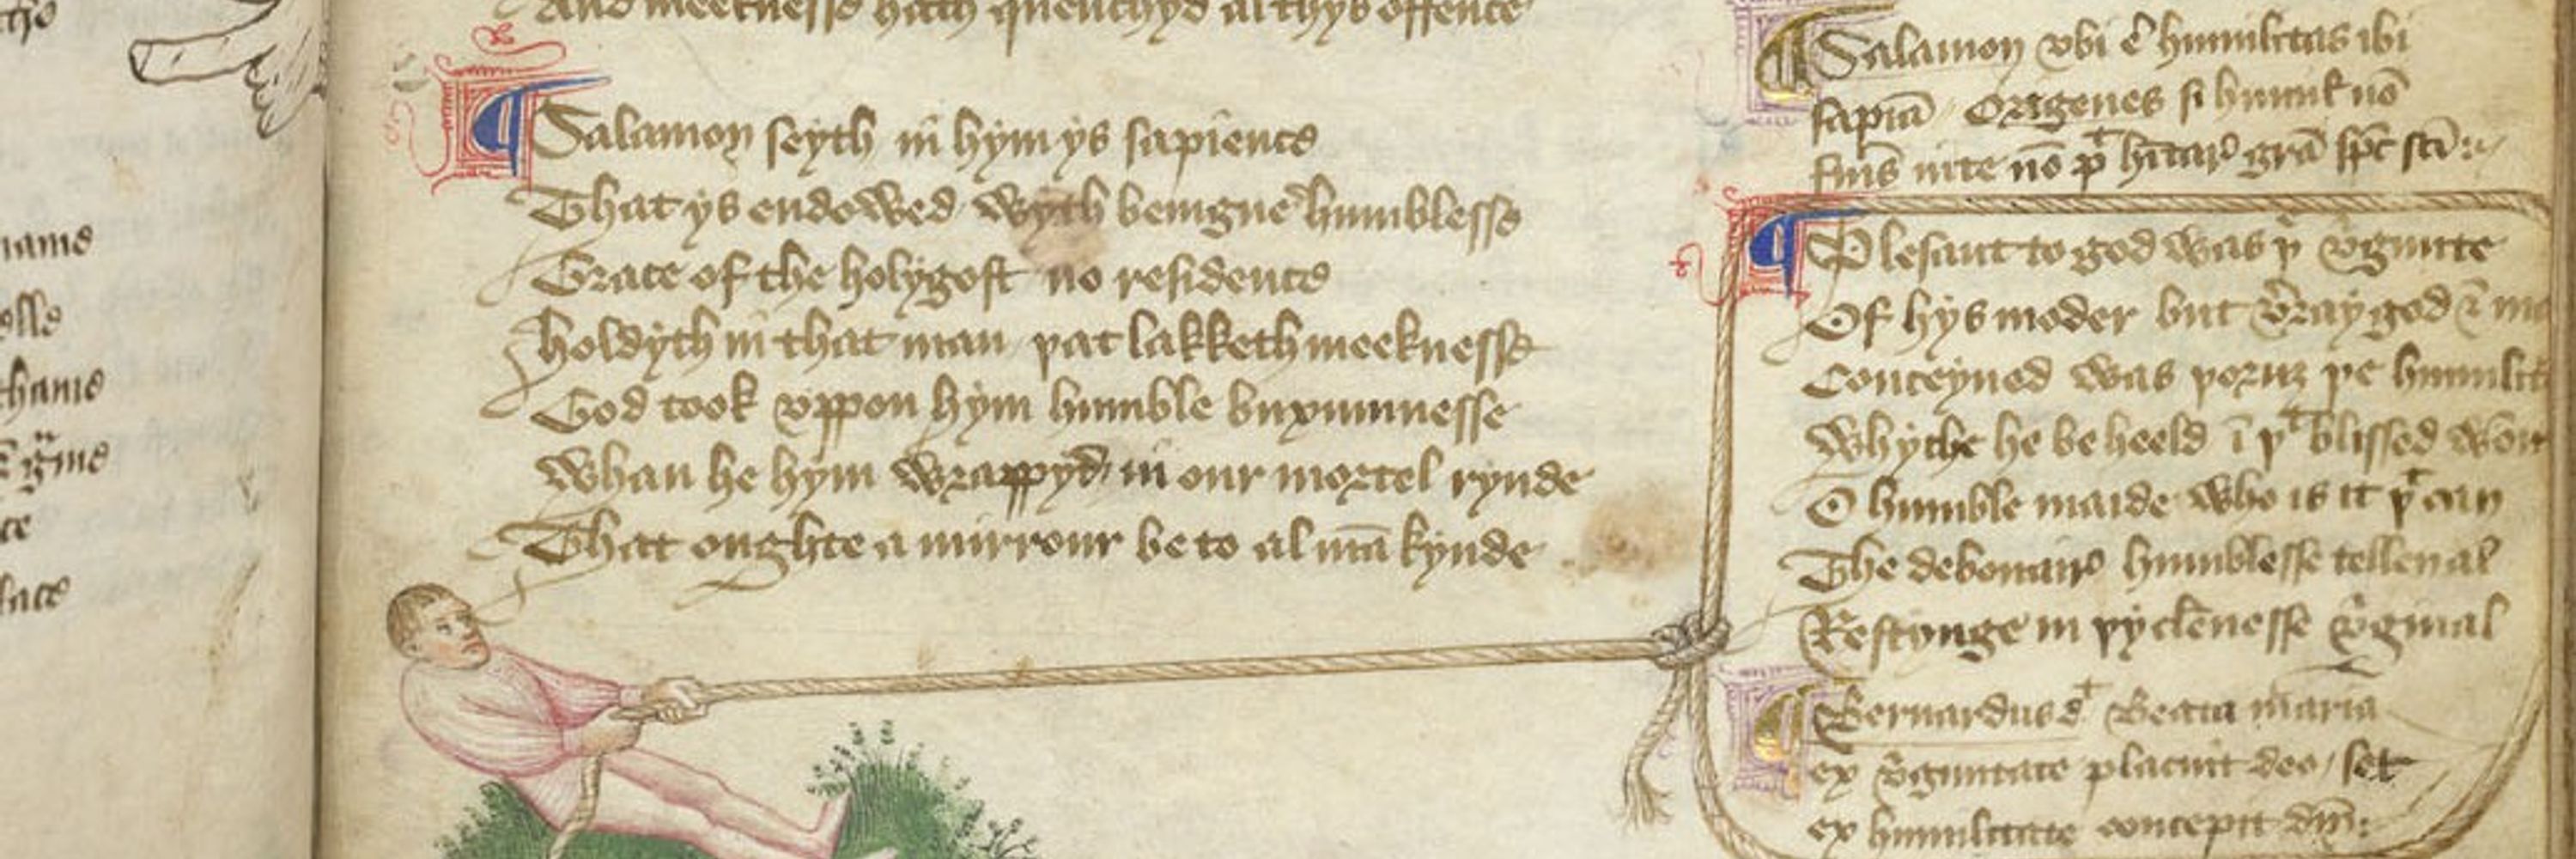 And meeknesse hath quenchyd al thys offence
Salamon seyth in hym ys sapience
That ys endowed wyth benigne humblesse
Grace of the holygost no residence
holdyth in that man þat lakketh meeknesse
God took vppon hym humble buxumnesse
Whan he hym wrappyd in our mortel rynde
That oughte a mirrour be to al mākynde
Salamon vbi ē humilitas ibi
sapiā Origenes si humil nō
fuis inte nō hītar grā spc scī
Plesant to god was þͭ v̓ginite
Of hys moder but v̓ray god
Conceyued was þoruȝ þe humilite
Whyche he beheeld ī þͭ blissed
O humble maide who is it þͭ can
The debonaire humblesse tellen al
Restynge in þy clēnesse v̓ginal
Bernardus d Beata maria
ex v̓ginitate placuit deo / set
ex humilitate concepit dm̄
name
thame
lace